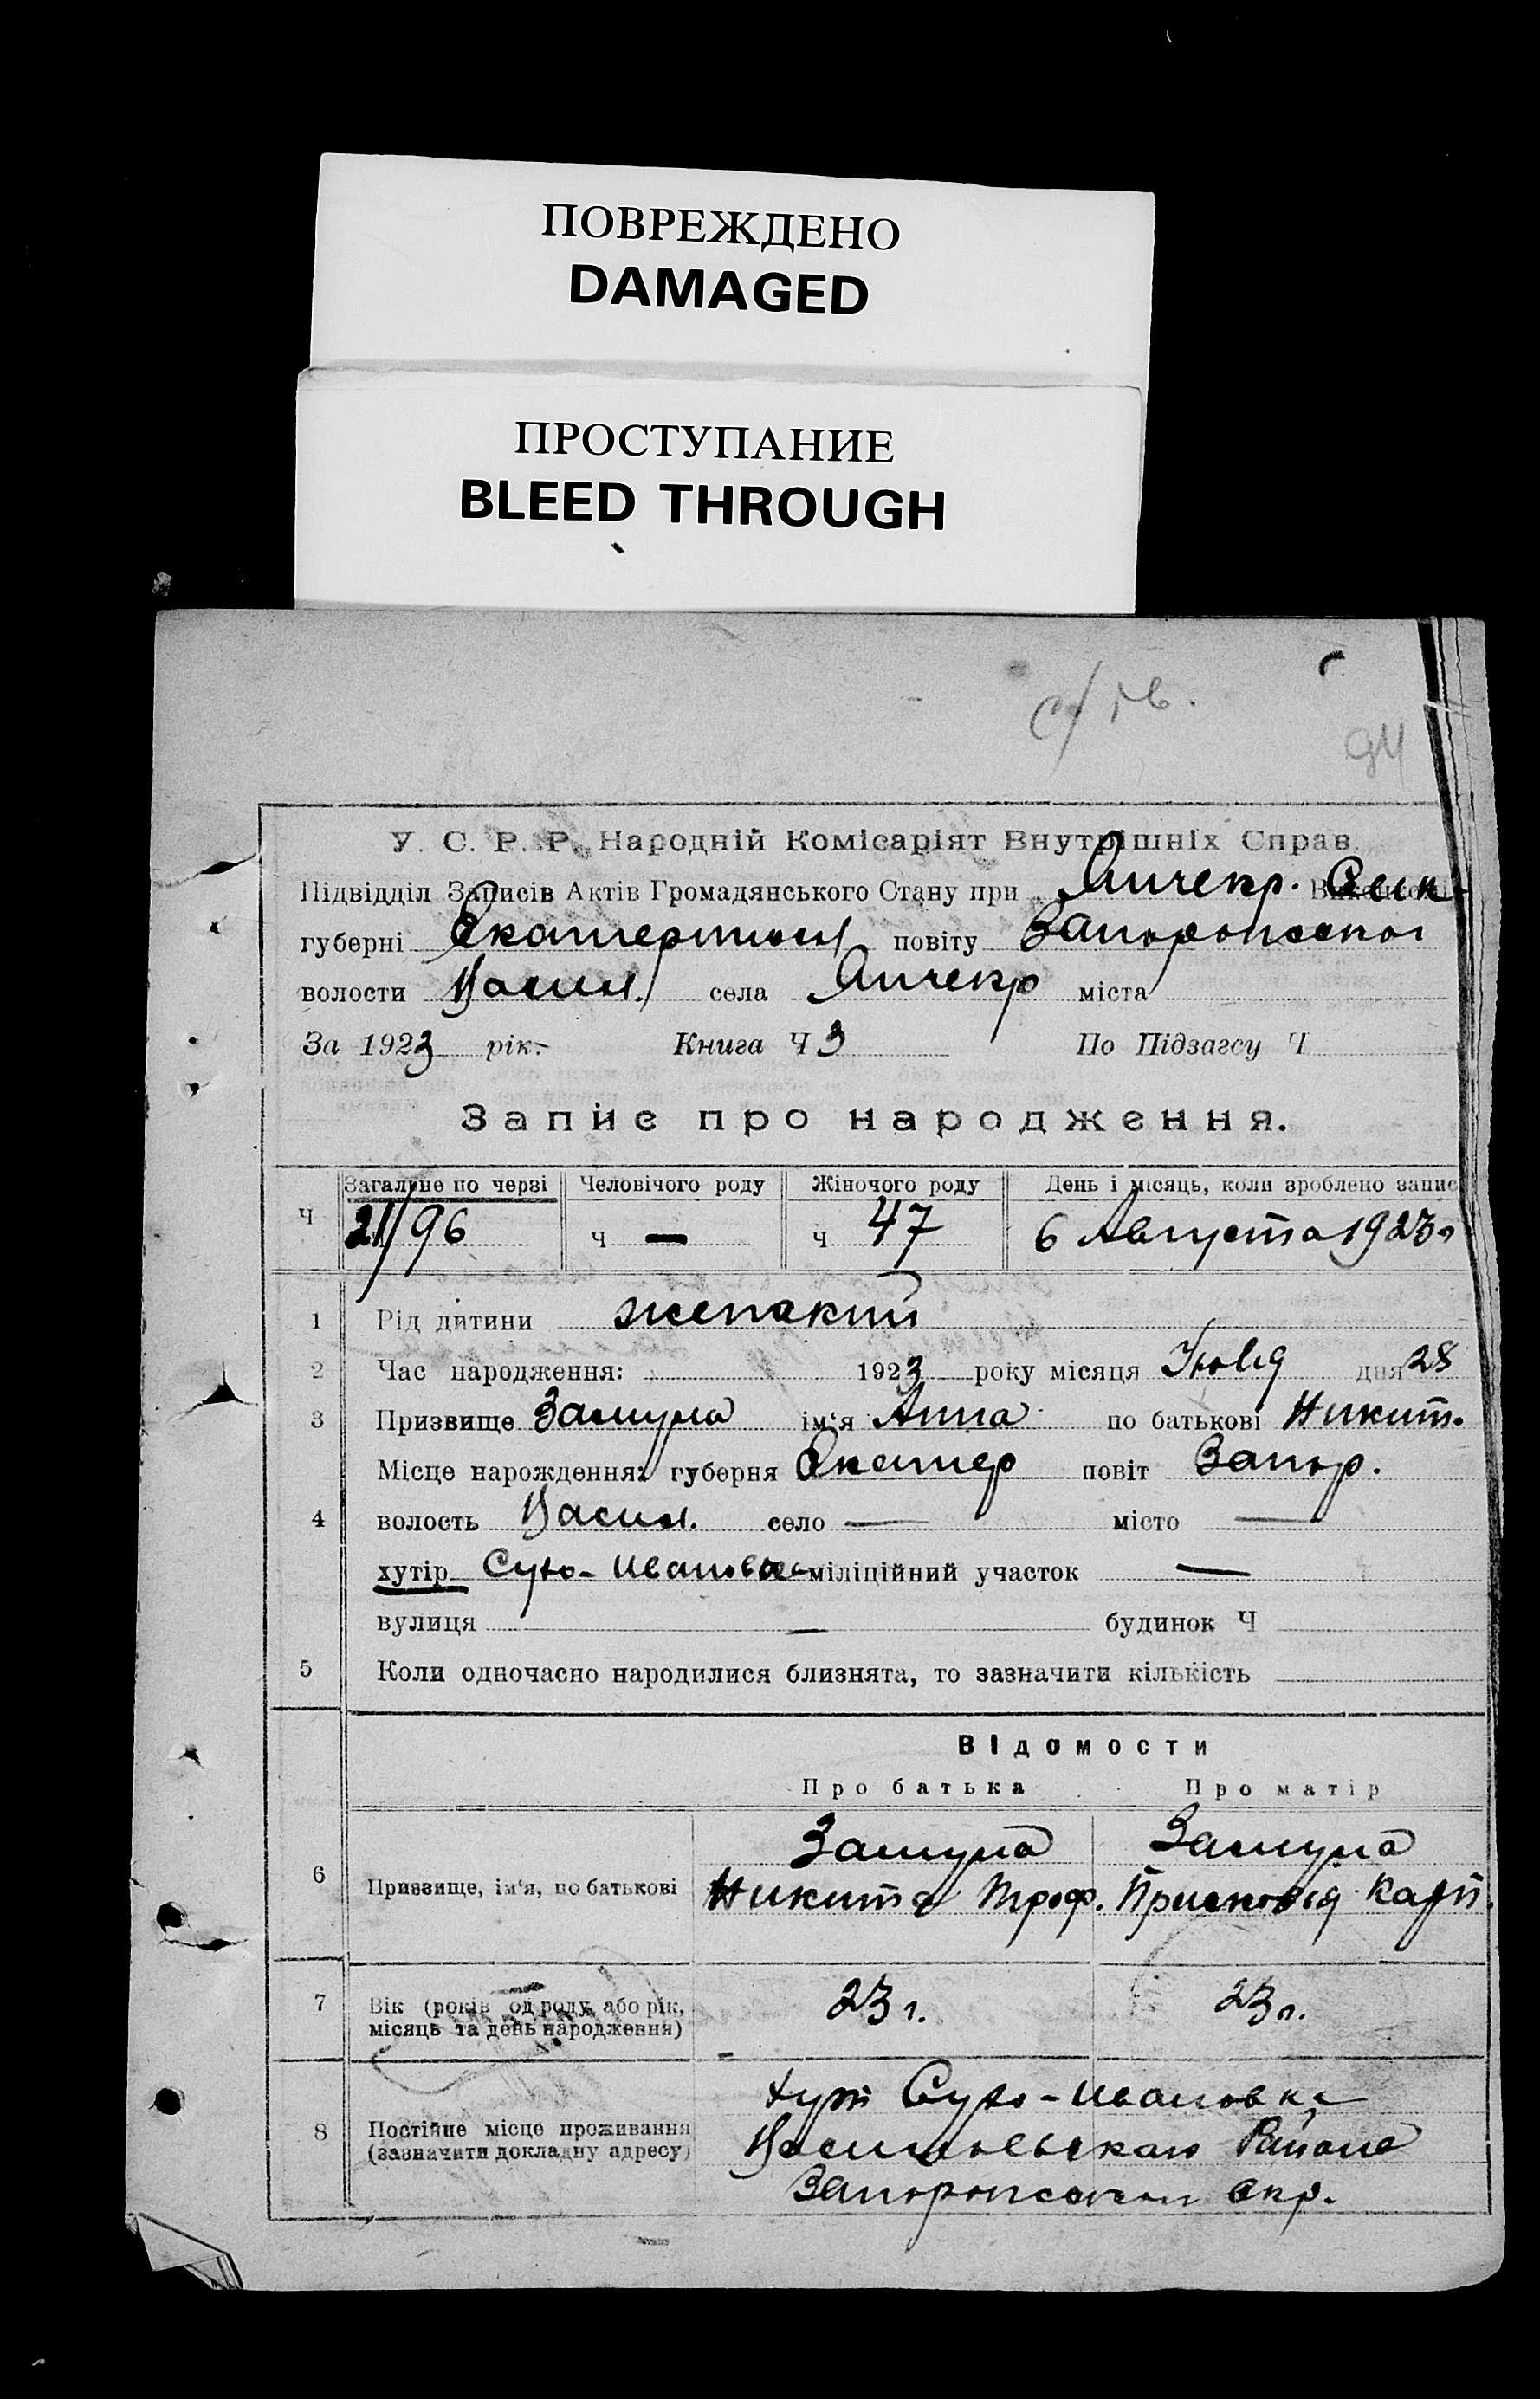 ПОВРЕЖДЕНО
DAMAGED
ПРОСТУПАНИЕ
BLEED THROUGH
94
У. С. Р. Р. Народній Комісаріят Внутрішніх Справ.
Підвідділ Записів Актів Громадянського Стану при Янчекр.
губерні Екатеринosл повіту Запорожской
волости Васил. села Янчекр міста
За 1923 рік. Книга Ч 3 По Підзагсу Ч
Запис про народження.
Загальне по черзі Человічого роду Жіночого роду День і місяць, коли зроблено запис
Ч 21/96 Ч — Ч 47 6 Августа 1923 г
1 Рід дитини женский
2 Час народження: 1923 року місяця Июля дня 28
3 Призвище Зашупа ім'я Анна по батькові Никит.
Місце нарождення: губерня Екатер повіт Запор.
4 волость Васил. село — місто —
хутір Сухо-Ивановка міліційний участок —
вулиця — будинок Ч
5 Коли одночасно народилися близнята, то зазначити кількість
Відомости
Про батька Про матір
Зашупа Зашупа
6 Призвище, ім'я, по батькові Никита Троф. Присковія Карп.
7 Вік (років од роду, або рік, 23 г. 23 г.
місяць та день народження)
хут Сухо-Ивановка
8 Постійне місце проживання Васильевскаго Района
(зазначити докладну адресу) Запорожской окр.